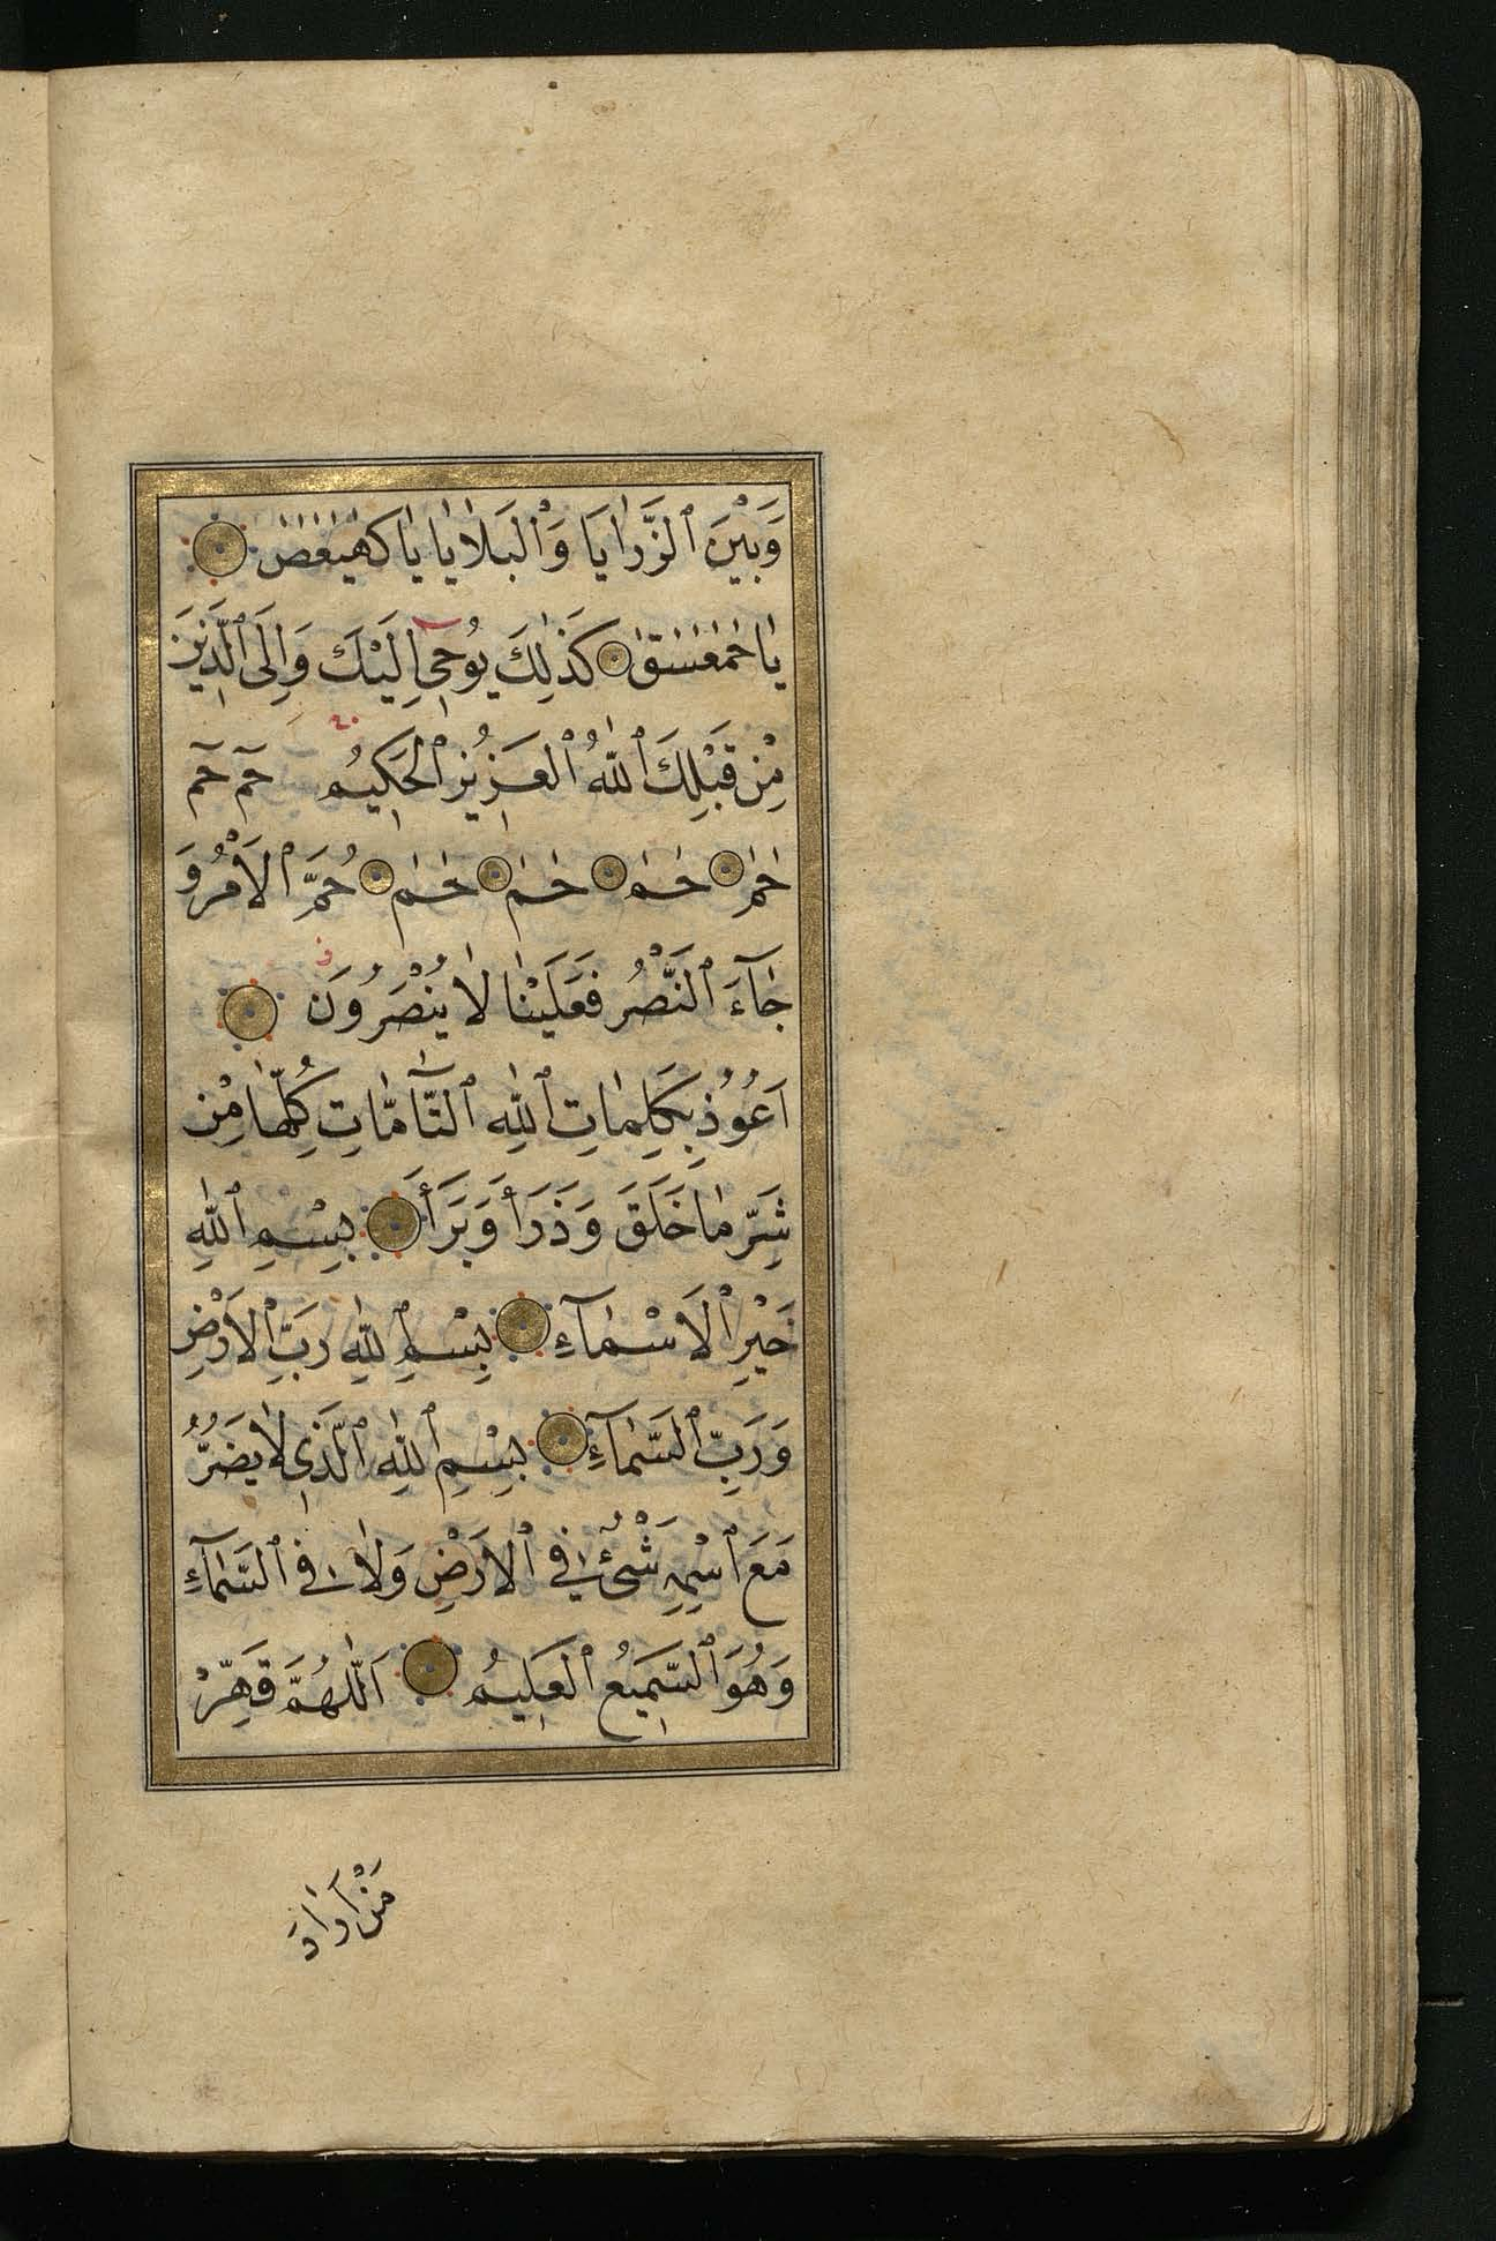 وَبَيْنَ ٱلرَّزَايَا وَٱلْبَلَايَا يَا كهيعص
يَا حمعسق كَذٰلِكَ يُوحٖى اِلَيْكَ وَاِلَى ٱلَّذٖينَ
مِنْ قَبْلِكَ ٱللّٰهُ ٱلْعَزٖيزُ ٱلْحَكٖيمُ حٓم حٓم
حٰم حٰم حٰم حٰم حُمَّ ٱلْاَمْرُ وَ
جَٓاءَ ٱلنَّصْرُ فَعَلَيْنَا لَا يُنْصَرُونَ
اَعُوذُ بِكَلِمَاتِ ٱللّٰهِ ٱلتَّٓامَّاتِ كُلِّهَا مِنْ
شَرِّ مَا خَلَقَ وَذَرَأَ وَبَرَأَ بِسْمِ ٱللّٰهِ
خَيْرِ ٱلْاَسْمَٓاءِ بِسْمِ ٱللّٰهِ رَبِّ ٱلْاَرْضِ
وَرَبِّ ٱلسَّمَٓاءِ بِسْمِ ٱللّٰهِ ٱلَّذٖى لَا يَضُرُّ
مَعَ ٱسْمِهٖ شَىْءٌ فِى ٱلْاَرْضِ وَلَا فِى ٱلسَّمَٓاءِ
وَهُوَ ٱلسَّمٖيعُ ٱلْعَلٖيمُ اَللّٰهُمَّ قَهِّرْ
مَنْ اَرَادَ